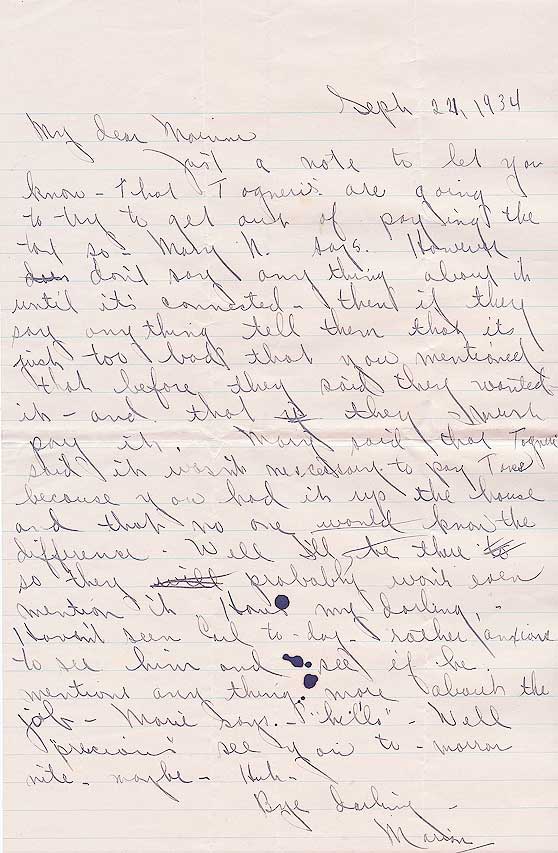 Sept 24, 1934
My dear Maxine
Just a note to let you
know - that Togneri's are going
to try to get out of paying the
tax so - Mary N. says. However
don't say anything about it
until it's connected - then if they
say anything tell them that its
just too bad that you mentioned
that before they said they wanted
it - and that they must
pay it. Mary said that Togneri
said it wasn't neccessary to pay
because you had it up the house
and that no one would know the
difference. Well I'll be there
so they probably won't even
mention it my darling, -
Haven't seen to-day - rather anxious
to see him and see if he
mentions any thing more about the
job - Marie says - "hello" - Well
"precious" see you to-morrow
nite - maybe - Huh -
Bye darling -